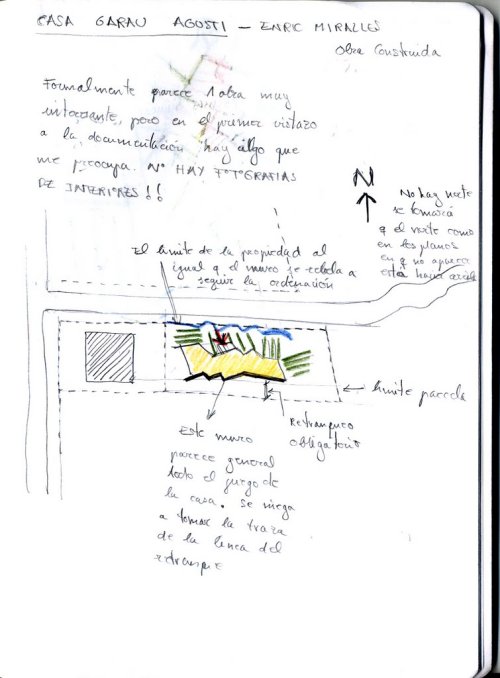 CASA GARAU AGUSTI - ENRIC MIRALLES
Obra Construida
Formalmente parece 1 obra muy
interesante, pero en el primer vistazo
a la documentación hay algo que
me preocupa. NO HAY FOTOGRAFIAS
DE INTERIORES!!
N
No hay norte
se tomará
q el norte como
en los planos
en q no aparece
está hacia arriba
El limite de la propiedad al
igual q el muro se rebela a
seguir la ordenación
limite parcela
Retranqueo
obligatorio
Este muro
parece generar
todo el juego de
la casa. Se niega
a tomar la traza
de la linea del
retranqueo